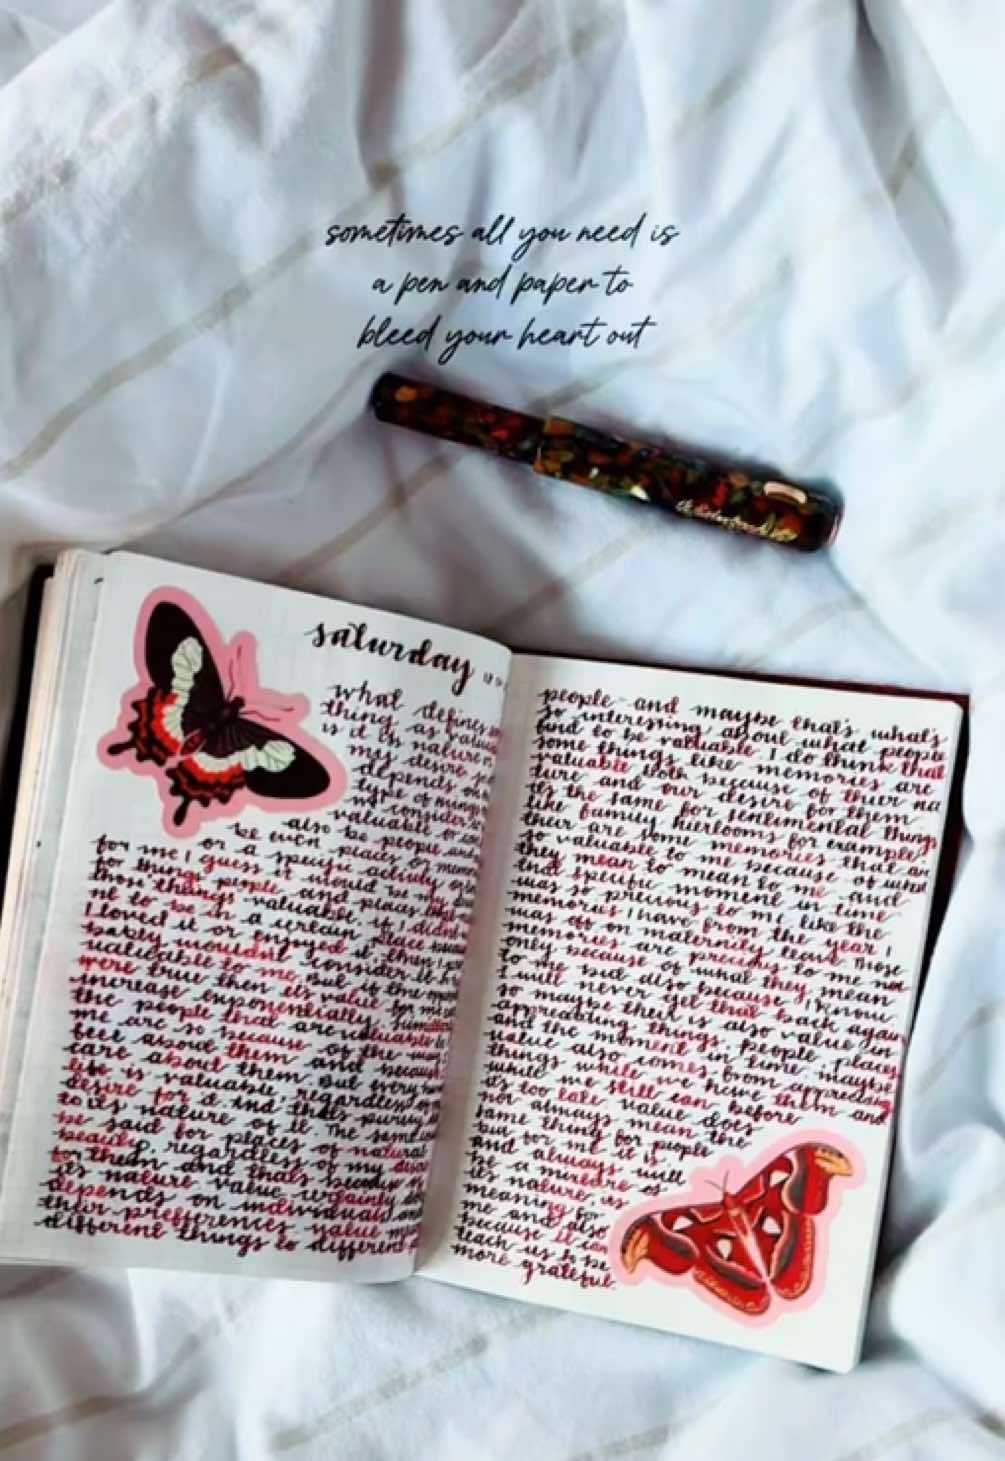 sometimes all you need is
a pen and paper to
bleed your heart out
saturday
what defines
thing as
is it its nature
my desire
depends on
type of things
we consider
valuable
also be people and
be even places or
or a specific activity
for me I guess it would be my
for things, people, and places
those things valuable. if I didn't
to be in a certain place
I loved it or enjoyed it, then I
wouldn't consider it
to me. But if the
were true then its value for me
increase exponentially.
the people that are valuable
me are so because of the way
feel about them and because
care about them. But every
life is valuable, regardless of
desire for it and that's purely
to its nature of it. The same
be said for places of natural
beauty, regardless of my desire
for them and thats because
its nature value certainly
depends on individuals and
their preferences value
different things to different
people - and maybe that's what's
so interesting about what people
find to be valuable I do think that
some things like memories are
valuable both because of thier na
ture and our desire for them
its the same for sentimental things
like family hierlooms for example
their are some memories that are
so valuable to me because of what
they mean to mean to me and
that specific moment in time
was so precious to me like the
memories I have from the year I
was off on maternity leave. Those
memories are precious to me not
only because of what they mean
to me but also because I know
I will never get that back again
so maybe their is also value in
appreciating things, people places
and the moment in time maybe
value also comes from appreciating
things while we have them and
while we still can before
it's too late value does
not always mean the
same thing for people
but for me it is
and always will
be a mixture of
its nature, its
meaning for
me and also
because it can
teach us to be
more grateful.